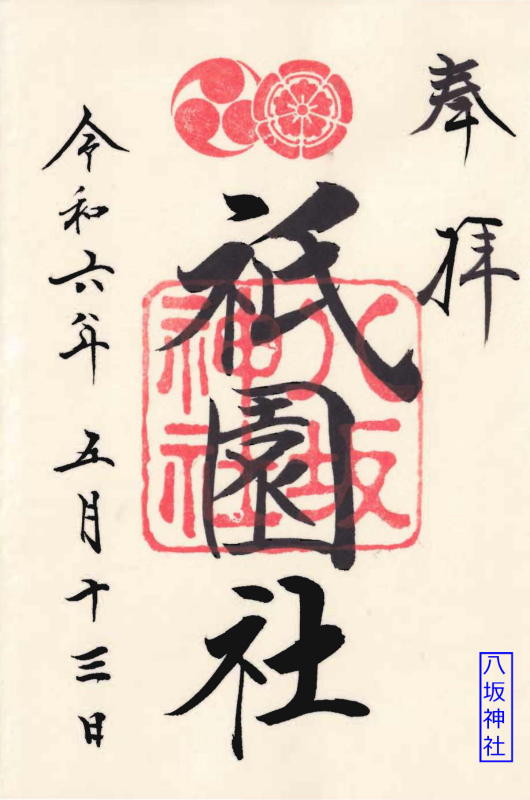 奉拝
八坂
神社
祇園社
令和六年五月十三日
八坂神社